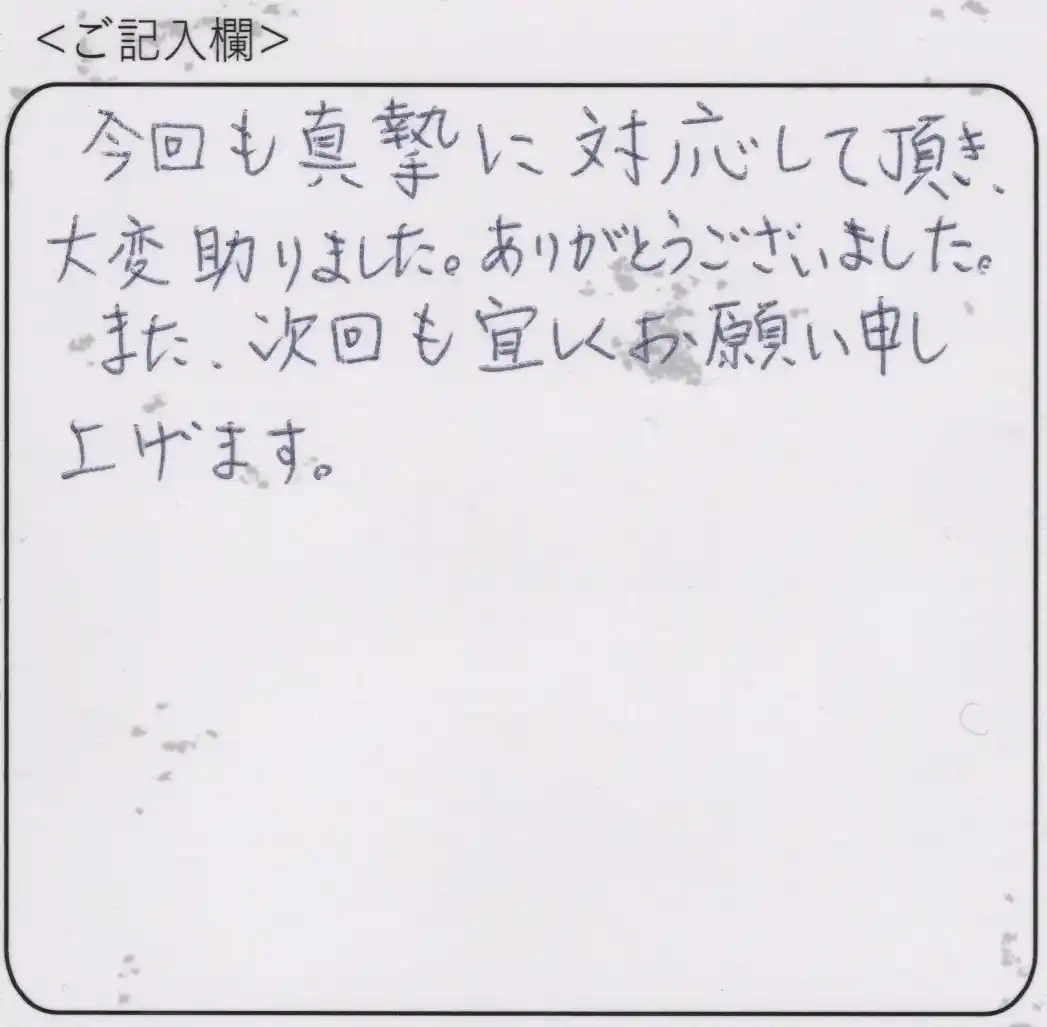 <ご記入欄>
今回も真摯に対応して頂き、
大変助りました。ありがとうございました。
また、次回も宜しくお願い申し
上げます。